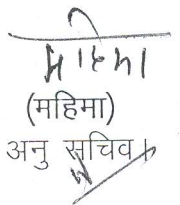 महिमा
(महिमा)
अनु सचिव।